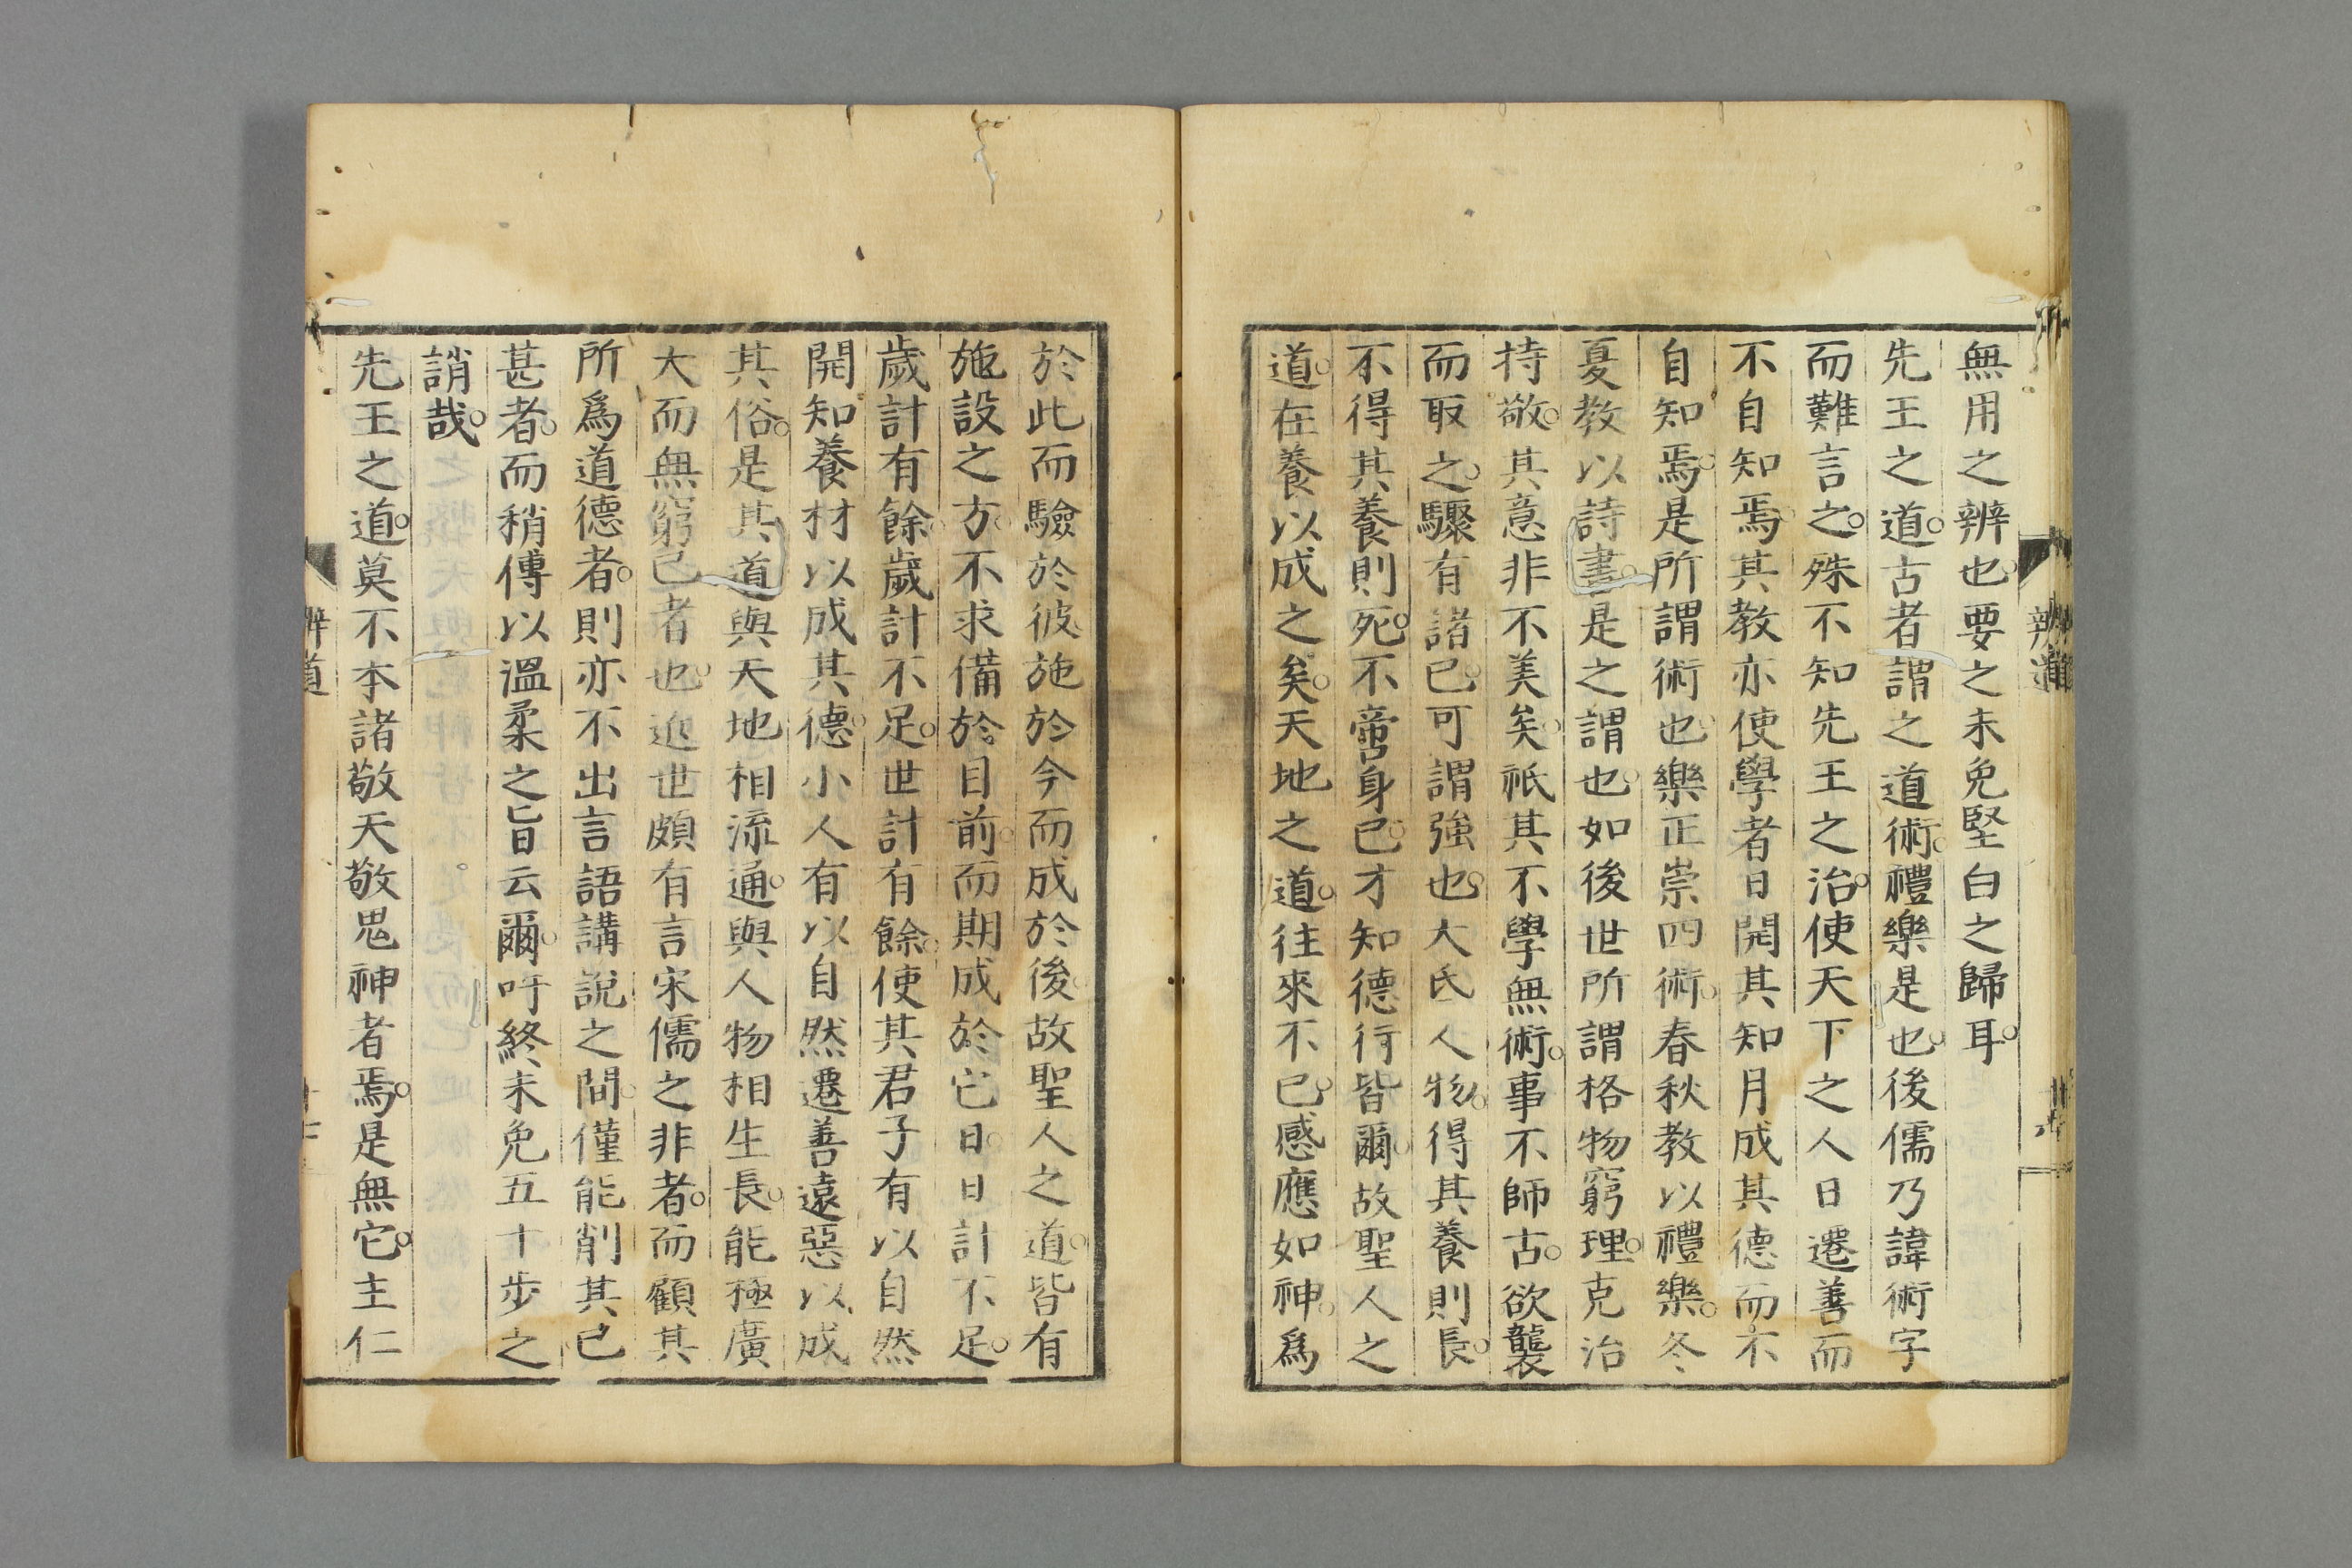 無用之辨也。要之未免堅白之歸耳。
先王之道。古者謂之道術。禮樂是也。後儒乃諱術字
而難言之。殊不知先王之治。使天下之人日遷善而
不自知焉。其教亦使學者日開其知月成其德而不
自知焉。是所謂術也。樂正崇四術。春秋教以禮樂。冬
夏教以詩書。是之謂也。如後世所謂格物窮理。克治
持敬。其意非不美矣。祇其不學無術。事不師古。欲襲
而取之。驟有諸已。可謂強也。大氐人物。得其養則長。
不得其養則死。不啻身已。才知德行皆爾。故聖人之
道。在養以成之矣。天地之道。往來不已。感應如神。爲
辨道
於此而驗於彼。施於今而成於後。故聖人之道。皆有
施設之方。不求備於目前。而期成於它日。日計不足。
歲計有餘。歲計不足。世計有餘。使其君子有以自然
開知養材以成其德。小人有以自然遷善遠惡以成
其俗。是其道與天地相流通。與人物相生長。能極廣
大而無窮已者也。迨世頗有言宋儒之非者。而顧其
所爲道德者。則亦不出言語講說之間。僅能削其已
甚者。而稍傅以溫柔之旨云爾。吁終未免五十步之
誚哉。
先王之道。莫不本諸敬天敬鬼神者焉。是無它。主仁
辨道